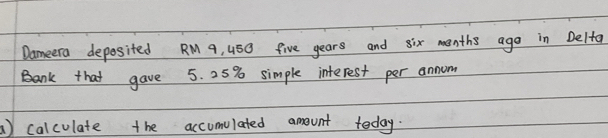 Dameera deposited RM 9,450 five years and six months ago in Delta
Bank that gave 5.25% simple interest per annum
a) calculate the accumulated amount today.